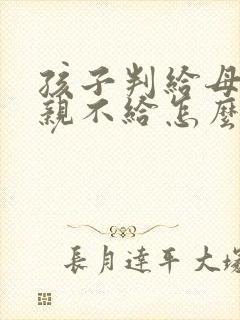 孩子判給母
親不給怎麼
長月達平大塚